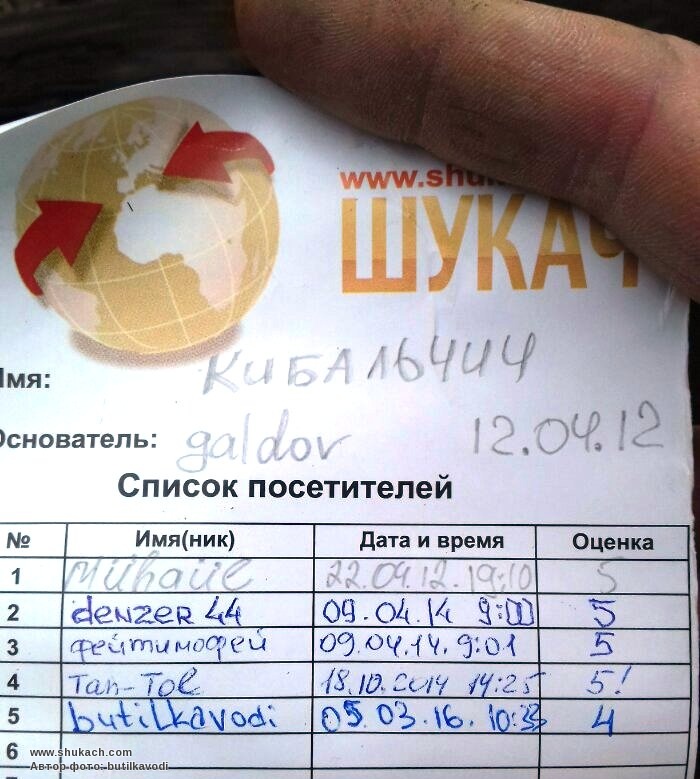 www.shu
ШУКАЧ
Имя: КИБАЛЬЧИЧ
Основатель: galdov 12.04.12
Список посетителей
№ Имя(ник) Дата и время Оценка
1 Mühaüe 22.04.12. 19:10 5
2 denzer 44 09.04.14 9:00 5
3 фейтимофей 09.04.14. 9:01 5
4 Tan-Tol 18.10.2014 14:25 5!
5 butilkavodi 05.03.16. 10:33 4
6
www.shukach.com
Автор фото: butilkavodi